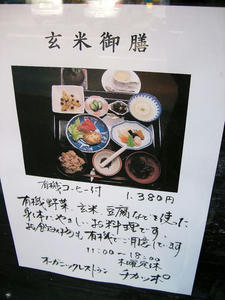 玄米御膳
有機コーヒー付 1,380円
有機野菜、玄米、豆腐などを使った
身体にやさしいお料理です。
お飲み物も有機でご用意してます
11:00~18:00
木曜定休
オーガニックレストラン